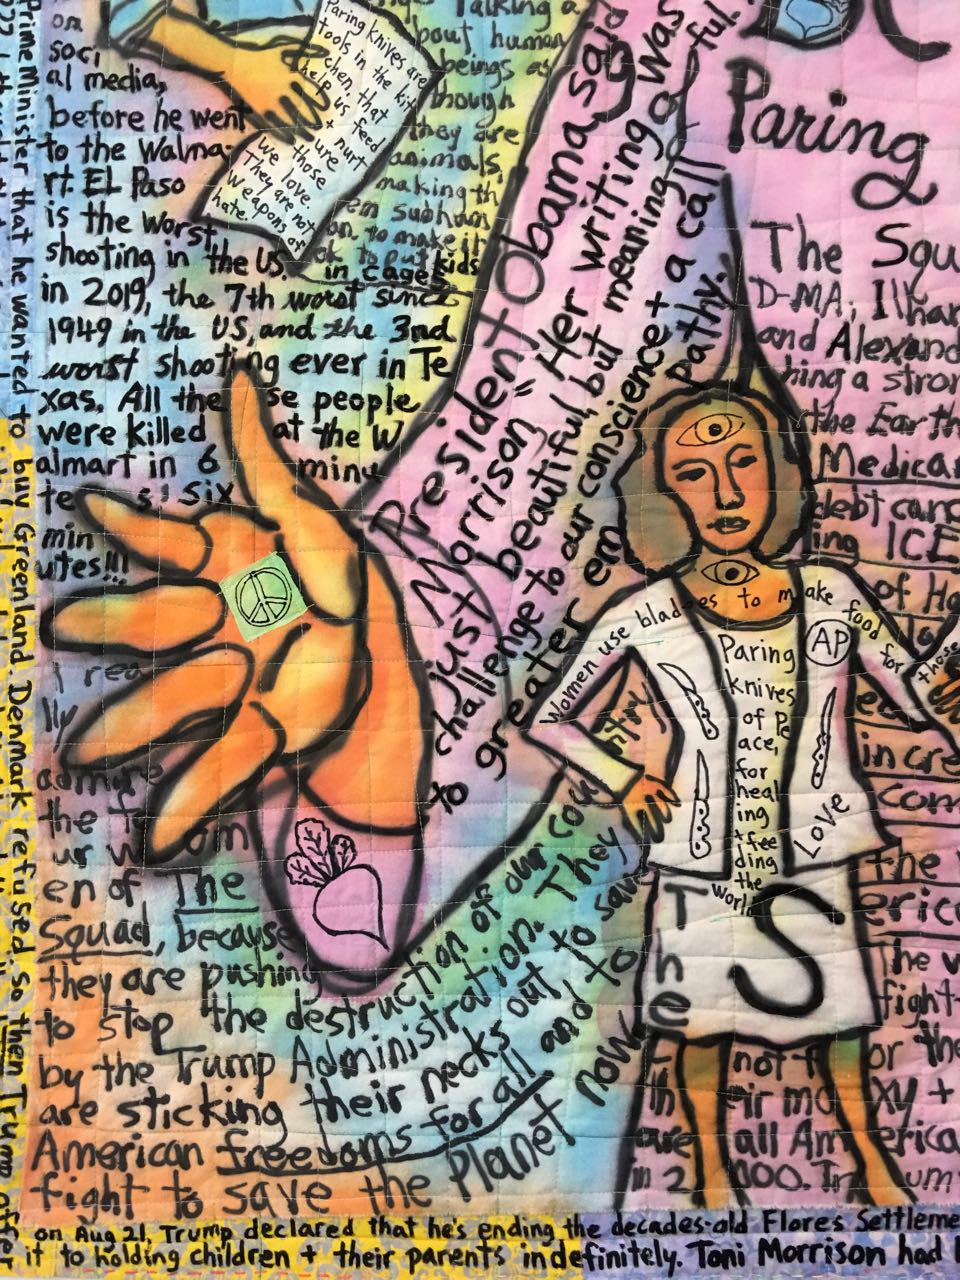 Prime Minister that he wanted to buy Greenland. Denmark refused, so then Trump
on
soci
al media,
before he went
to the Walma-
rt. EL Paso
is the worst
shooting in the US.
in 2019, the 7th worst since
1949 in the US, and the 3nd
worst shooting ever in Te
xas. All the se people
were killed at the W
almart in 6 minu
te s! Six
min
utes!!!
I rea
lly
admire
the fo
ur wom
en of The
Squad, because
they are pushing
to stop the destruction of our cou
ntry
by the Trump Administration. They
are sticking their necks out to save
American freedoms for all and to
fight to save the Planet now.
Paring knives are
tools in the kit
chen, that
help us feed
+ nurt
ure those
we love.
They are not
weapons of
hate.
Talking a
bout human
beings as
though
they are
animals,
making th
em subhum
an to make it
ok to put kids
in cages
President Obama said
Morrison = Her writing was
just beautiful, but meaningful.
to challenge to our conscience + a call
greater empathy.
Paring
The Squ
D-MA; Ilhan
and Alexand
hing a stron
the Earth
Medicar
debt canc
ing ICE
of Ho
Women use blades to make food for those
AP
Paring
knives
of Pe
ace,
for
heal
ing
+ fee
ding
the
world
Love
The
S
in cre
com
the w
erica
The w
fight-
not f or the
their mo xy +
are all Am erica
in 2 000. In um
on Aug 21, Trump declared that he's ending the decades-old Flores Settleme
it to holding children + their parents indefinitely. Toni Morrison had